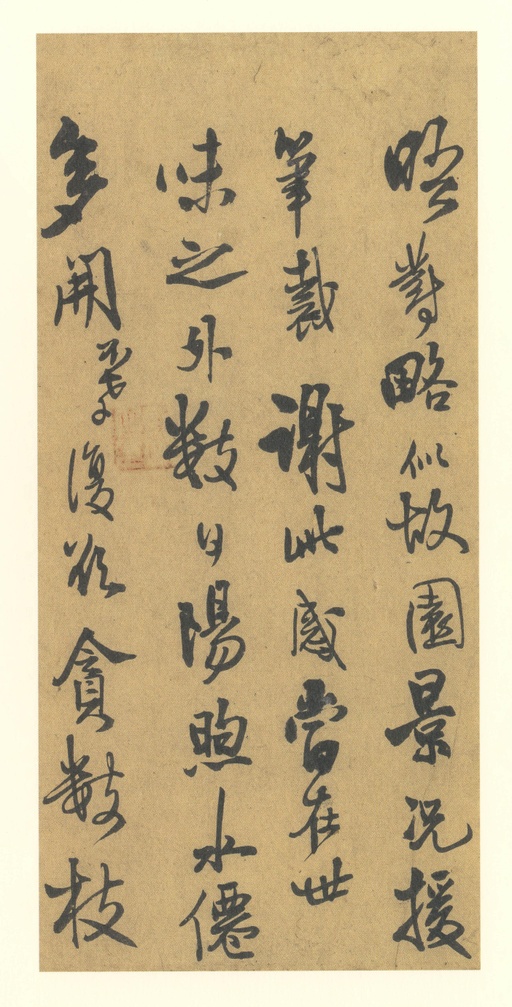 晤對略似故園景況援
筆裁謝此感當在世
味之外數日陽煦水僊
多開不多復欲貪數枝